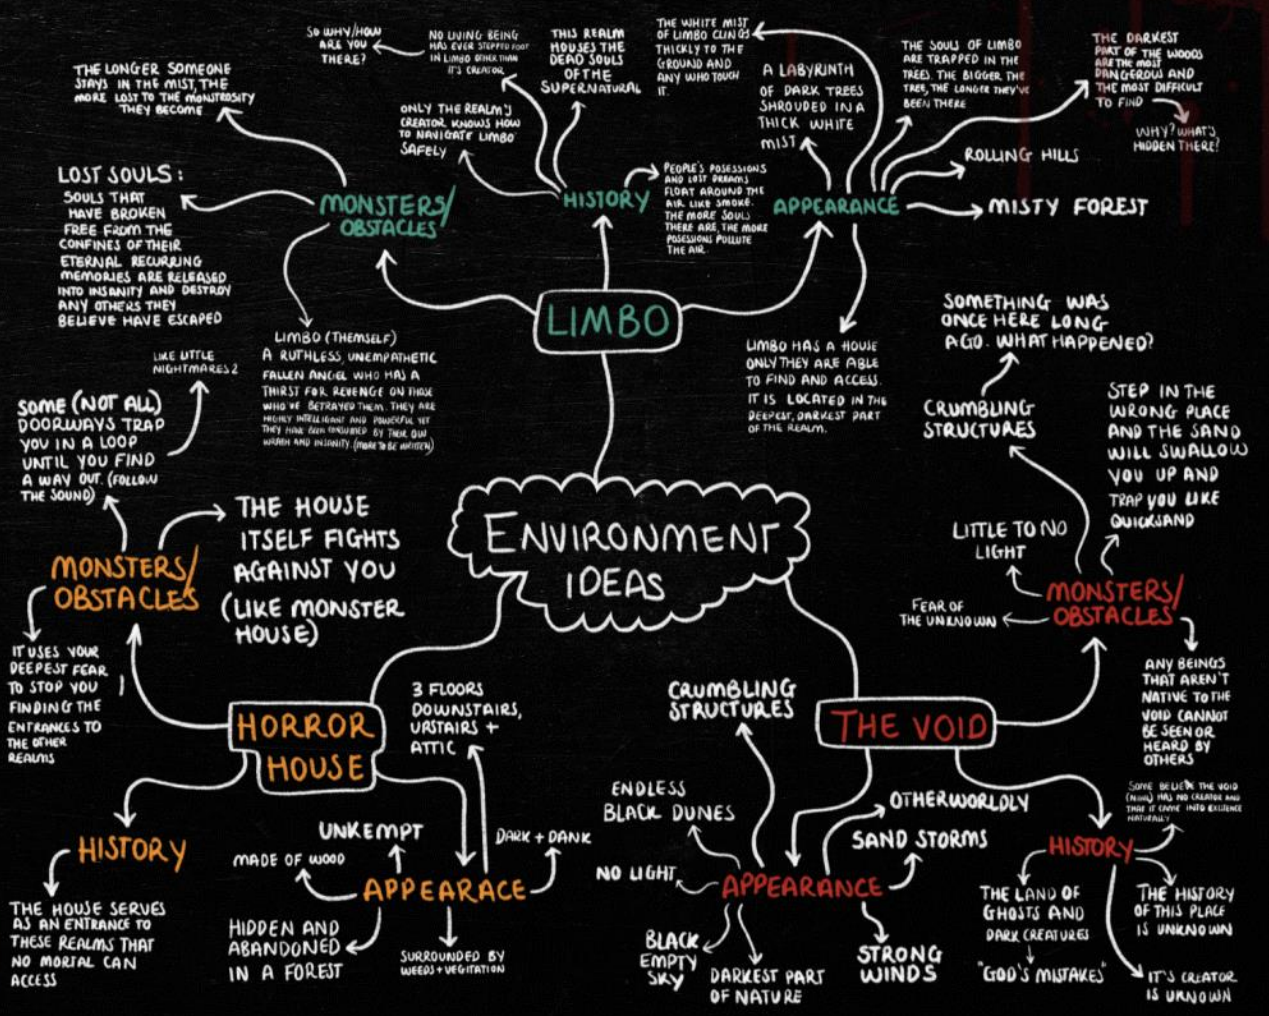 ENVIRONMENT
IDEAS
LIMBO
MONSTERS/
OBSTACLES
THE LONGER SOMEONE
STAYS IN THE MIST, THE
MORE LOST TO THE MONSTROSITY
THEY BECOME
LOST SOULS:
SOULS THAT
HAVE BROKEN
FREE FROM THE
CONFINES OF THEIR
ETERNAL RECURRING
MEMORIES ARE RELEASED
INTO INSANITY AND DESTROY
ANY OTHERS THEY
BELIEVE HAVE ESCAPED
LIMBO (THEMSELF)
A RUTHLESS, UNEMPATHETIC
FALLEN ANGEL WHO HAS A
THIRST FOR REVENGE ON THOSE
WHO'VE BETRAYED THEM. THEY ARE
HIGHLY INTELLIGENT AND POWERFUL YET
THEY HAVE BEEN CONSUMED BY THEIR OWN
WRATH AND INSANITY. (MORE TO BE WRITTEN)
HISTORY
SO WHY/HOW
ARE YOU
THERE?
NO LIVING BEING
HAS EVER STEPPED FOOT
IN LIMBO OTHER THAN
IT'S CREATOR
THIS REALM
HOUSES THE
DEAD SOULS
OF THE
SUPERNATURAL
ONLY THE REALM'S
CREATOR KNOWS HOW
TO NAVIGATE LIMBO
SAFELY
PEOPLE'S POSESSIONS
AND LOST DREAMS
FLOAT AROUND THE
AIR LIKE SMOKE.
THE MORE SOULS
THERE ARE, THE MORE
POSESSIONS POLLUTE
THE AIR.
APPEARANCE
THE WHITE MIST
OF LIMBO CLINGS
THICKLY TO THE
GROUND AND
ANY WHO TOUCH
IT.
A LABYRINTH
OF DARK TREES
SHROUDED IN A
THICK WHITE
MIST
THE SOULS OF LIMBO
ARE TRAPPED IN THE
TREES. THE BIGGER THE
TREE, THE LONGER THEY'VE
BEEN THERE
THE DARKEST
PART OF THE WOODS
ARE THE MOST
DANGEROUS AND
THE MOST DIFFICULT
TO FIND
WHY? WHAT'S
HIDDEN THERE?
ROLLING HILLS
MISTY FOREST
LIMBO HAS A HOUSE
ONLY THEY ARE ABLE
TO FIND AND ACCESS.
IT IS LOCATED IN THE
DEEPEST, DARKEST PART
OF THE REALM.
HORROR
HOUSE
MONSTERS/
OBSTACLES
LIKE LITTLE
NIGHTMARES 2
SOME (NOT ALL)
DOORWAYS TRAP
YOU IN A LOOP
UNTIL YOU FIND
A WAY OUT. (FOLLOW
THE SOUND)
THE HOUSE
ITSELF FIGHTS
AGAINST YOU
(LIKE MONSTER
HOUSE)
IT USES YOUR
DEEPEST FEAR
TO STOP YOU
FINDING THE
ENTRANCES TO
THE OTHER
REALMS
HISTORY
THE HOUSE SERVES
AS AN ENTRANCE TO
THESE REALMS THAT
NO MORTAL CAN
ACCESS
APPEARACE
3 FLOORS
DOWNSTAIRS,
UPSTAIRS +
ATTIC
UNKEMPT
MADE OF WOOD
DARK + DANK
HIDDEN AND
ABANDONED
IN A FOREST
SURROUNDED BY
WEEDS + VEGITATION
THE VOID
MONSTERS/
OBSTACLES
SOMETHING WAS
ONCE HERE LONG
AGO. WHAT HAPPENED?
CRUMBLING
STRUCTURES
STEP IN THE
WRONG PLACE
AND THE SAND
WILL SWALLOW
YOU UP AND
TRAP YOU LIKE
QUICKSAND
LITTLE TO NO
LIGHT
FEAR OF
THE UNKNOWN
ANY BEINGS
THAT AREN'T
NATIVE TO THE
VOID CANNOT
BE SEEN OR
HEARD BY
OTHERS
APPEARANCE
CRUMBLING
STRUCTURES
ENDLESS
BLACK DUNES
NO LIGHT
BLACK
EMPTY
SKY
DARKEST PART
OF NATURE
OTHERWORLDLY
SAND STORMS
STRONG
WINDS
HISTORY
SOME BELIEVE THE VOID
HAS NO CREATOR AND
THAT IT CAME INTO EXISTENCE
NATURALLY
THE LAND OF
GHOSTS AND
DARK CREATURES
"GOD'S MISTAKES"
THE HISTORY
OF THIS PLACE
IS UNKNOWN
IT'S CREATOR
IS UNKNOWN